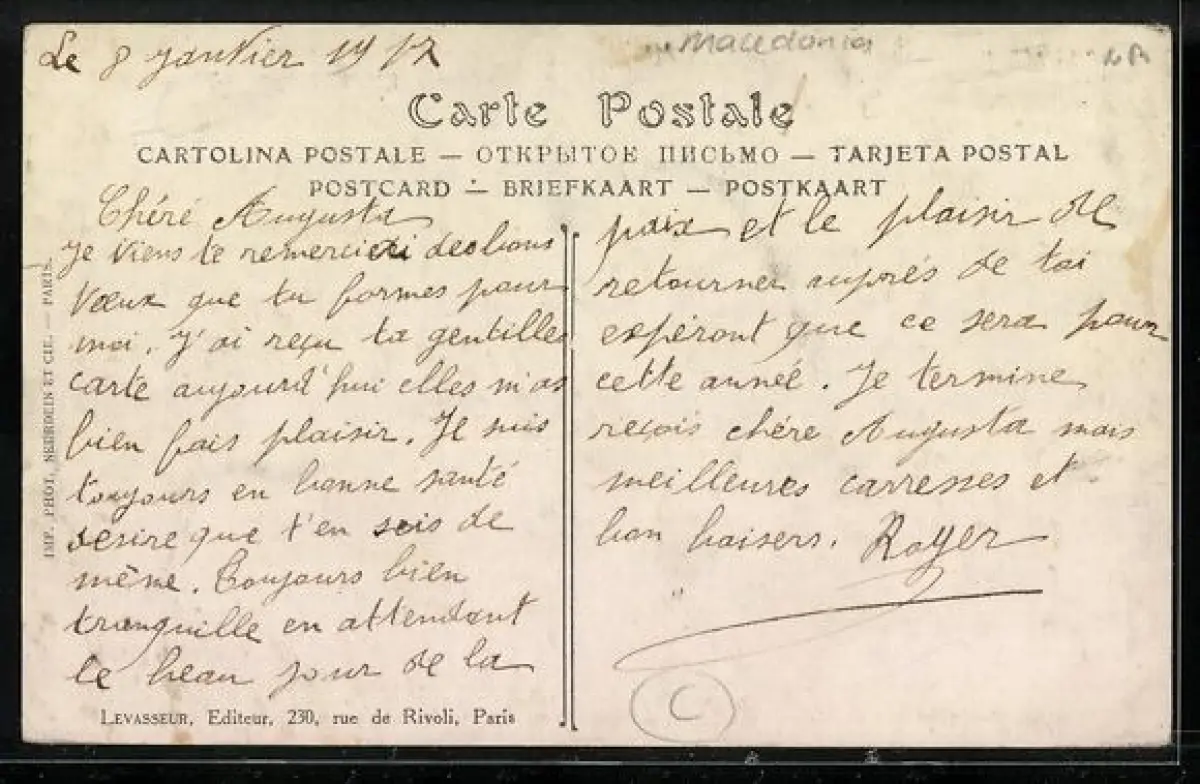 Le 8 janvier 1917
Macedonia
Carte Postale
CARTOLINA POSTALE — ОТКРЫТОЕ ПИСЬМО — TARJETA POSTAL
POSTCARD — BRIEFKAART — POSTKAART
Chéré Augusta
Je viens te remercier des bons
vœux que tu formes pour
moi. J'ai reçu ta gentilles
carte aujourd'hui elles m'as
bien fais plaisir. Je suis
toujours en bonne santé
désire que t'en sois de
même. Toujours bien
tranquille en attendant
le beau jour de la
paix et le plaisir de
retourner auprés de toi
espéront que ce sera pour
cette anneé. Je termine
reçois chére Augusta mais
meilleures carresses et
bon baisers. Royer
C
IMP. PHOT. NEURDEIN ET CIE. — PARIS.
LEVASSEUR, Editeur, 230, rue de Rivoli, Paris